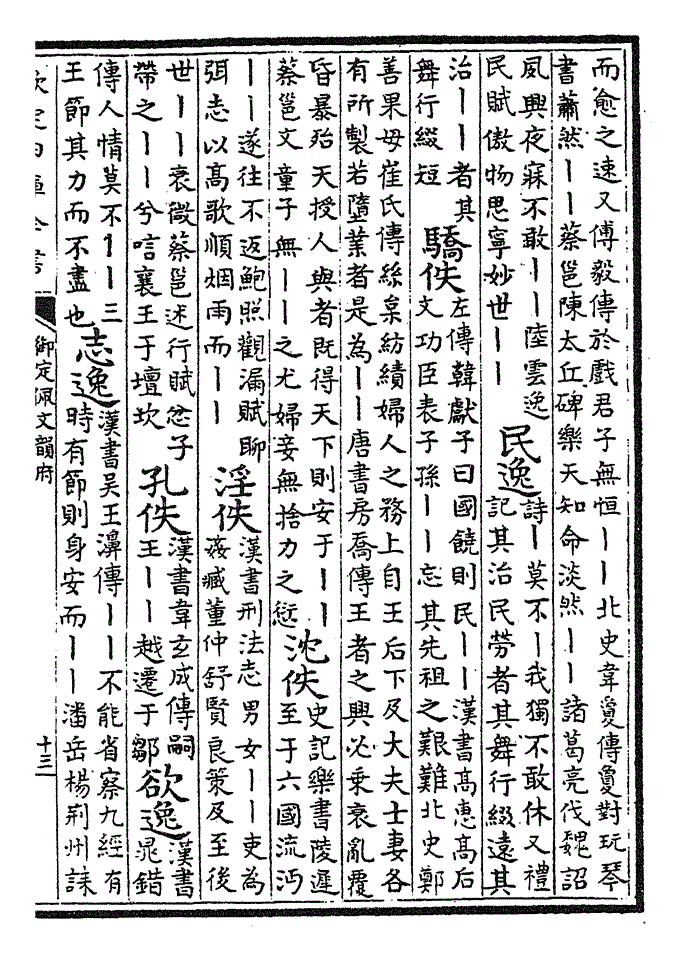 而愈之速又傅毅傳於戲君子無恒丨丨北史韋敻傳敻對玩琴
書蕭然丨丨蔡邕陳太丘碑樂天知命淡然丨丨諸葛亮伐魏詔
夙興夜寐不敢丨丨陸雲逸
民賦傲物思寧妙世丨丨
民逸
詩丨莫不丨我獨不敢休又禮
記其治民勞者其舞行綴遠其
治丨丨者其
舞行綴短
驕佚
左傳韓獻子曰國饒則民丨丨漢書高惠高后
文功臣表子孫丨丨忘其先祖之艱難北史鄭
善果母崔氏傳絲枲紡績婦人之務上自王后下及大夫士妻各
有所製若墮業者是為丨丨唐書房喬傳王者之興必乘衰亂覆
昏暴殆天授人與者既得天下則安于丨丨
蔡邕文童子無丨丨之尤婦妾無捨力之愆
沈佚
史記樂書陵遲
至于六國流沔
丨丨遂往不返鮑照觀漏賦聊
弭志以高歌順烟雨而丨丨
淫佚
漢書刑法志男女丨丨吏為
姦臧董仲舒賢良策及至後
世丨丨衰微蔡邕述行賦忿子
帶之丨丨兮唁襄王于壇坎
孔佚
漢書韋玄成傳嗣
王丨丨越遷于鄒
欲逸
漢書
晁錯
傳人情莫不丨丨三
王節其力而不盡也
志逸
漢書吳王濞傳丨丨不能省察九經有
時有節則身安而丨丨潘岳楊荊州誄
欽定四庫全書
御定佩文韻府
十三